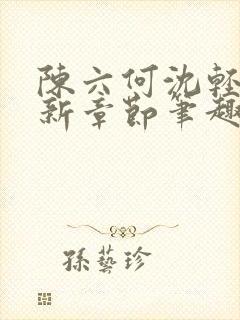 陳六何沈輕
新章節筆趣
孫藝珍